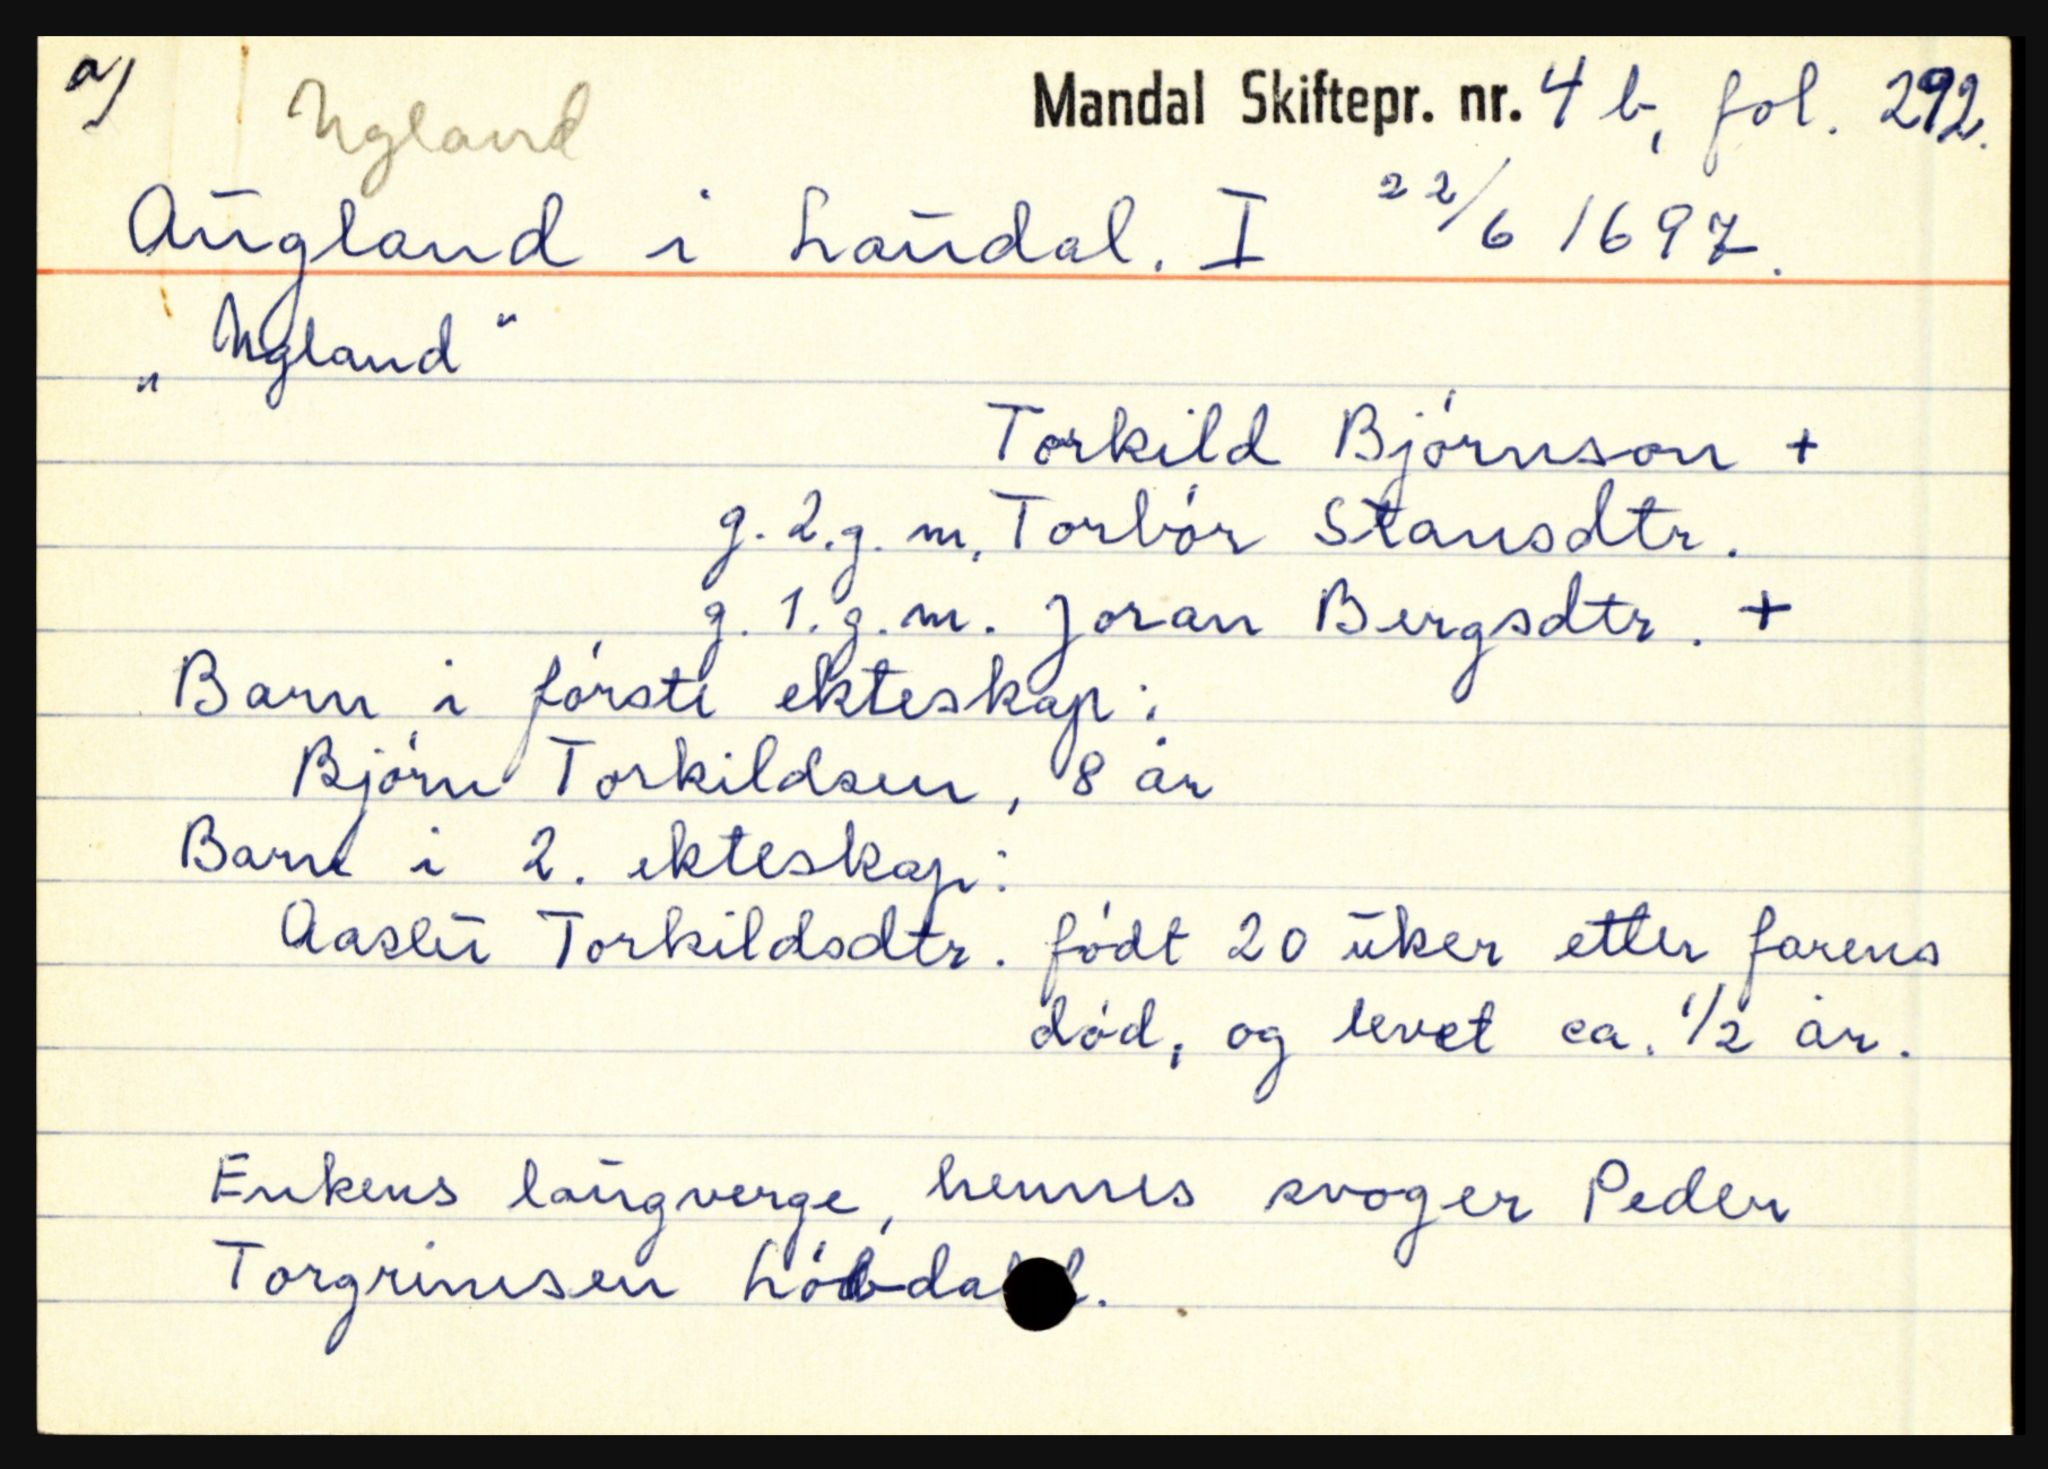 a)
Ugland
Mandal Skiftepr. nr. 4 b, fol. 292.
Augland i Laudal. I 22/6 1697.
„Ugland“
Torkild Bjórnson +
g. 2. g. m. Torbór Stausdtr.
g. 1. g. m. Joran Bergsdtr. +
Barn i fórste ekteskap:
Bjórn Torkildsen, 8 år
Barn i 2. ekteskap:
Aaslu Torkildsdtr. fódt 20 uker etter farens
dód, og levet ca. 1/2 år.
Enkens laugverge, hennes svoger Peder
Torgrimsen